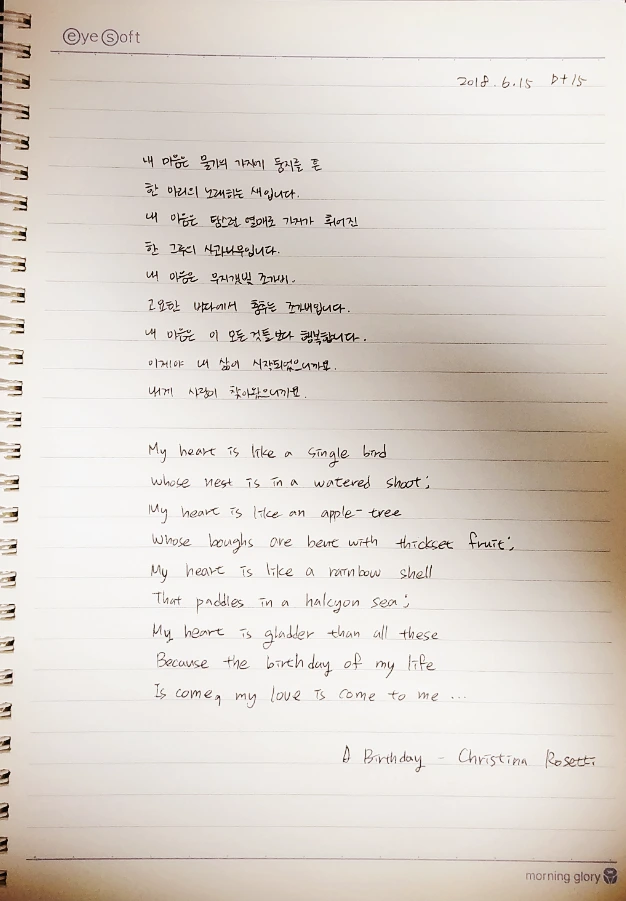 eyesoft
2018.6.15 D+15
내 마음은 물가의 가지에 둥지를 튼
한 마리의 노래하는 새입니다.
내 마음은 탐스런 열매로 가지가 휘어진
한 그루의 사과나무입니다.
내 마음은 무지갯빛 조가비.
고요한 바다에서 춤추는 조가비입니다.
내 마음은 이 모든 것들보다 행복합니다.
이제야 내 삶이 시작되었으니까요.
내게 사랑이 찾아왔으니까요.
My heart is like a single bird
Whose nest is in a watered shoot;
My heart is like an apple-tree
Whose boughs are bent with thickset fruit;
My heart is like a rainbow shell
That paddles in a halcyon sea;
My heart is gladder than all these
Because the birthday of my life
Is come, my love is come to me ...
A Birthday - Christina Rosetti
morning glory